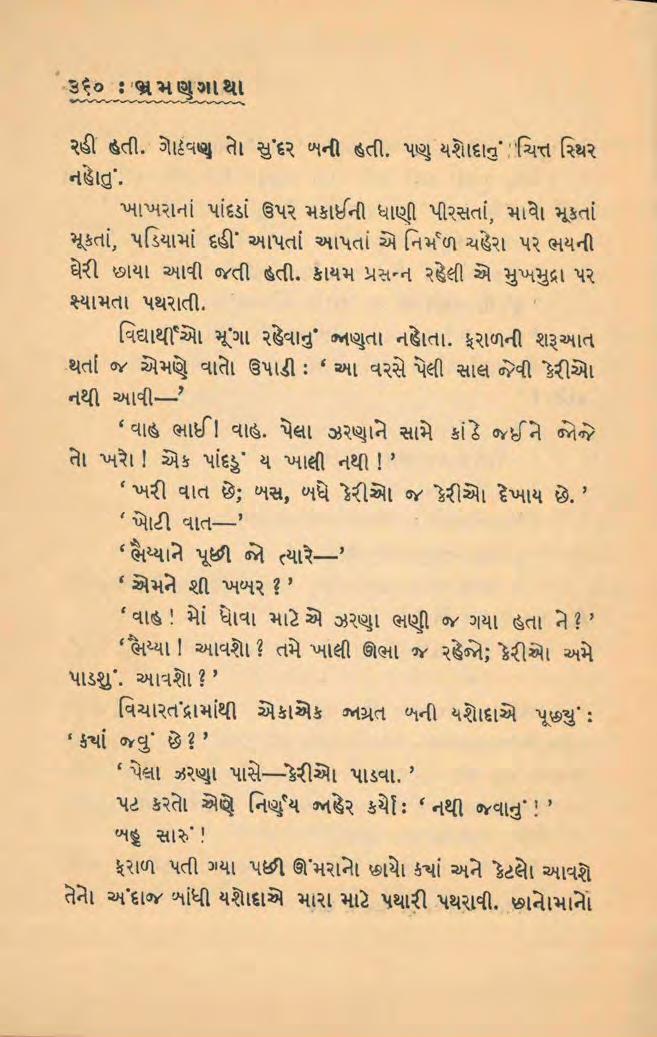 ૩૬૦ : ભ્રમણગાથા
રહી હતી. ગોઠવણ તો સુંદર બની હતી. પણ યશોદાનું ચિત્ત સ્થિર
નહોતું.
ખાખરાનાં પાંદડાં ઉપર મકાઈની ધાણી પીરસતાં, માવો મૂકતાં
મૂકતાં, પડિયામાં દહીં આપતાં આપતાં એ નિર્મળ ચહેરા પર ભયની
ઘેરી છાયા આવી જતી હતી. કાયમ પ્રસન્ન રહેલી એ મુખમુદ્રા પર
શ્યામતા પથરાતી.
વિદ્યાર્થીઓ મૂંગા રહેવાનું જાણતા નહોતા. ફરાળની શરૂઆત
થતાં જ એમણે વાતો ઉપાડી : ‘ આ વરસે પેલી સાલ જેવી કેરીઓ
નથી આવી—’
‘ વાહ ભાઈ! વાહ. પેલા ઝરણાને સામે કાંઠે જઈને જોજે
તો ખરો! એક પાંદડું ય ખાલી નથી ! ’
‘ ખરી વાત છે; બસ, બધે કેરીઓ જ કેરીઓ દેખાય છે. ’
‘ ખોટી વાત—’
‘ ભૈય્યાને પૂછી જો ત્યારે—’
‘ એમને શી ખબર ? ’
‘ વાહ ! મોં ધોવા માટે એ ઝરણા ભણી જ ગયા હતા ને ? ’
‘ ભૈય્યા ! આવશો ? તમે ખાલી ઊભા જ રહેજો; કેરીઓ અમે
પાડશું. આવશો ? ’
વિચારતંદ્રામાંથી એકાએક જાગ્રત બની યશોદાએ પૂછ્યું :
‘ ક્યાં જવું છે ? ’
‘ પેલા ઝરણા પાસે—કેરીઓ પાડવા. ’
પટ કરતો એણે નિર્ણય જાહેર કર્યો : ‘ નથી જવાનું ! ’
બહુ સારું !
ફરાળ પતી ગયા પછી ઊંમરાનો છાયો ક્યાં અને કેટલો આવશે
તેનો અંદાજ બાંધી યશોદાએ મારા માટે પથારી પથરાવી. છાનોમાનો